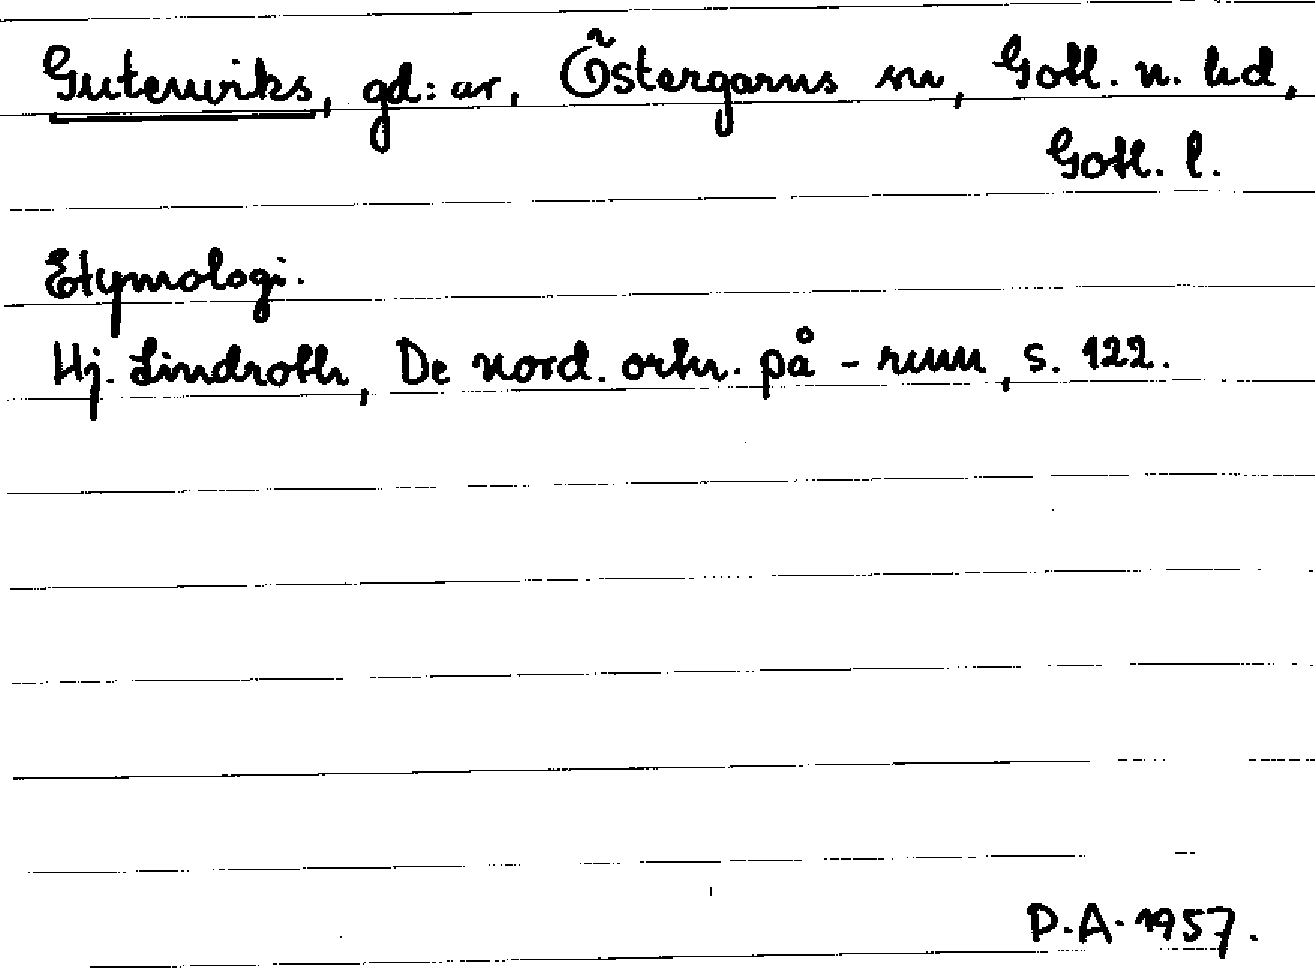 Gutenviks, gd:ar, Östergarns sn, Gotl. n. hd,
Gotl. l.
Etymologi.
Hj. Lindroth, De nord. ortn. på -rum, s. 122.
P.A. 1957.